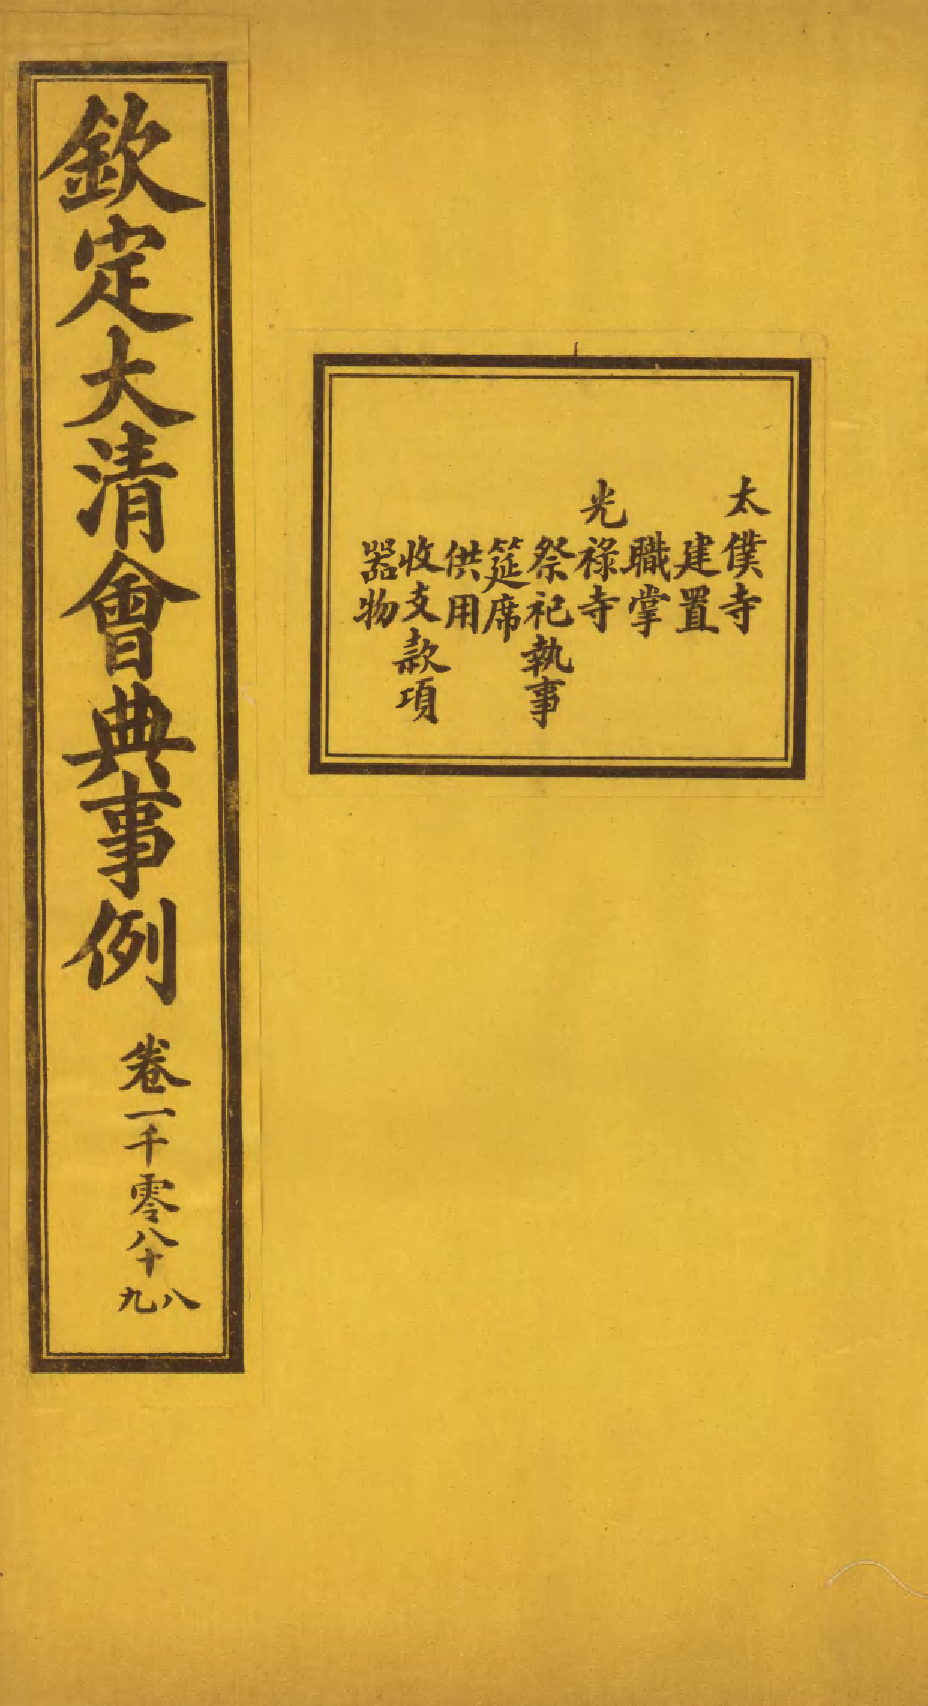 太僕寺
建置
職掌
光祿寺
祭祀執事
筵席
供用
收支款項
器物
欽定大清會典事例 卷一千零八十八九